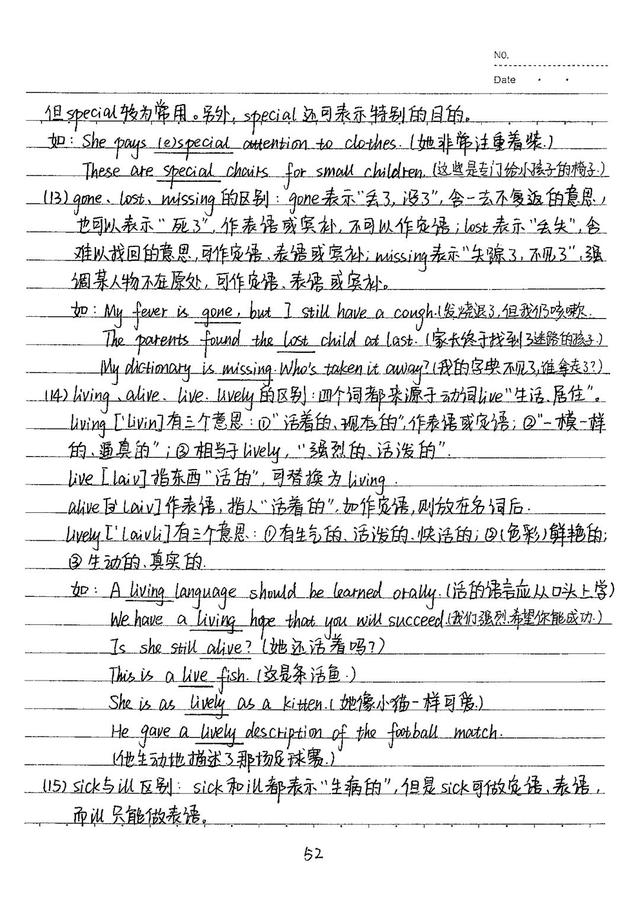 NO.
Date · ·
但special较为常用。另外, special还可表示特别的目的。
如: She pays (e)special attention to clothes. (她非常注重着装.)
These are special chairs for small children. (这些是专门给小孩子的椅子.)
(13) gone、lost、missing的区别: gone表示"丢了,没了", 含一去不复返的意思,
也可以表示"死了", 作表语或宾补, 不可以作定语; lost表示"丢失", 含
难以找回的意思,可作定语、表语或宾补; missing表示"失踪了,不见了",强
调某人物不在原处,可作定语、表语或宾补。
如: My fever is gone, but I still have a cough.(发烧退了,但我仍咳嗽.
The parents found the lost child at last. (家长终于找到了迷路的孩子.)
My dictionary is missing. Who's taken it away? (我的字典不见了,谁拿走了?)
(14) living、alive、live、lively的区别: 四个词都来源于动词live"生活、居住"。
living ['livin]有三个意思: ①"活着的、现存的",作表语或定语; ②"一模一样
的、逼真的"; ③相当于lively, "强烈的、活泼的".
live [laiv]指东西"活的", 可替换为living.
alive[ə'laiv]作表语,指人"活着的",如作定语,则放在名词后.
lively['laivli]有三个意思: ①有生气的、活泼的、快活的; ②(色彩)鲜艳的;
③生动的、真实的.
如: A living language should be learned orally. (活的语言应从口头上学)
We have a living hope that you will succeed.(我们强烈希望你能成功.)
Is she still alive? (她还活着吗?)
This is a live fish. (这是条活鱼.)
She is as lively as a kitten. (她像小猫一样可爱.)
He gave a lively description of the football match.
(他生动地描述了那场足球赛.)
(15) sick与ill区别: sick和ill都表示"生病的",但是sick可做定语、表语,
而ill只能做表语。
52